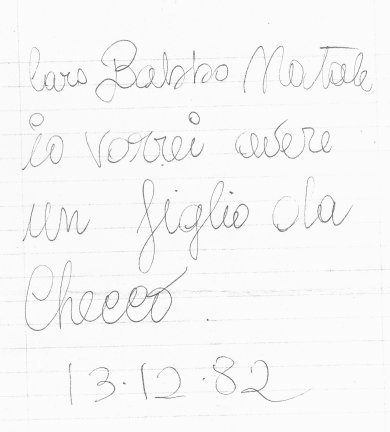 Caro Babbo Natale
io vorrei avere
un figlio da
Checco.
13.12.82